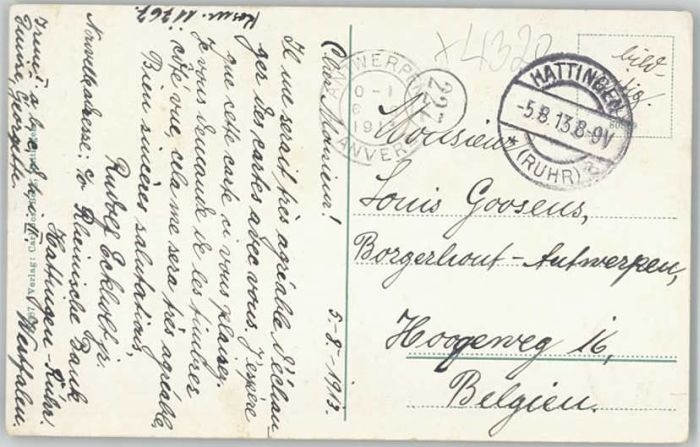 Kosm. 11767.
Cher Monsieur! 5-8-1913.
Il me serait très agréable d'échan-
ger des cartes avec vous. J'espère
que cette carte ci vous plaise.
Je vous demande de les timbrer
côté vue, cela me sera très agréable.
Bien sincères salutations,
Rudolf
c/o Rheinische Bank
Hattingen-Ruhr.
Westfalen.
+4320
HATTINGEN
-5.8.13.8-9V
* (RUHR) 2
ANTWERPEN
ANVERS
221
Monsieur
Louis Goosens,
Borgerhout-Antwerpen,
Hoogeweg 16,
Belgien.